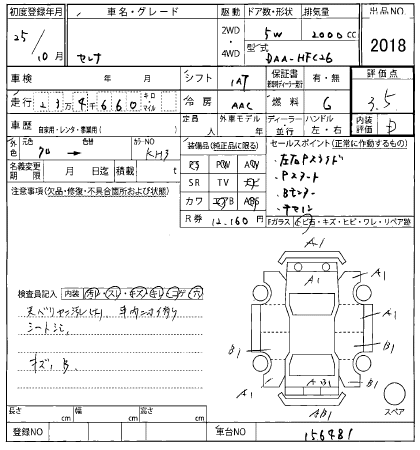 初度登録年月 車名・グレード 駆動 ドア数・形状 排気量 出品NO
25/10月 セレナ 2WD・4WD 5W 2000cc 2018
型式 DAA-HFC26
車検 年 月 シフト IAT 保証書 有・無 評価点 3.5
走行 23万4千660. キロ・マイル 冷房 AAC 燃料 G
車歴 自家用・レンタ・事業用( ) 定員 人 外車モデル 年 ディーラー・並行 ハンドル 左・右 内装評価 D
外色 元色 クロ 色替 カラーNO KH3
装備品(純正品に限る)
セールスポイント(正常に作動するもの)
名義変更期限 月 日迄 積載 t
PS PW AW
SR TV ナビ
カワ エアB ABS
R券 12,160円
左右Pスライド
Pスタート
Bモニター
注意事項(欠品・修復・不具合箇所および状態)
Fガラス ヒビ・キズ・ヒビ・ワレ・リペア跡
A1
A1
A1
A1
B1
B1
B1
A1
AB1
AB1
スペア
検査員記入 内装
シートシミ
キズ、B.
長さ cm 幅 cm 高さ cm
登録NO 車台NO 156481